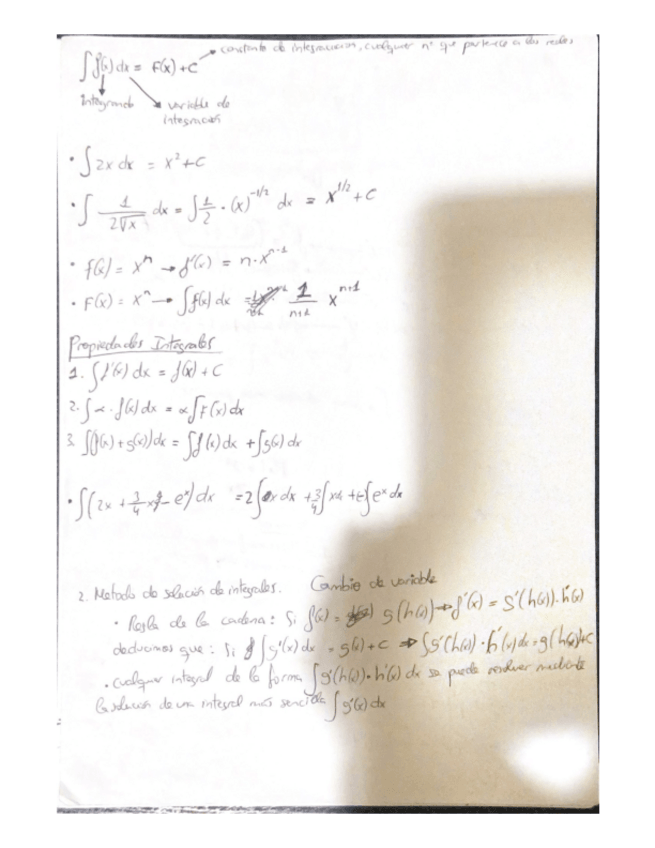 constante de integración, cualquier nº que pertenece a los reales
∫ f(x) dx = F(x) + C
Integrando variable de
integración
• ∫ 2x dx = x² + C
• ∫ 1/(2√x) dx = ∫ 1/2 · (x)^(-1/2) dx = x^(1/2) + C
• f(x) = xⁿ → f'(x) = n·x^(n-1)
• F(x) = xⁿ → ∫ f(x) dx = 1/(n+1) x^(n+1)
Propiedades Integrales
1. ∫ f'(x) dx = f(x) + C
2. ∫ α · f(x) dx = α ∫ F(x) dx
3. ∫ (f(x) + g(x)) dx = ∫ f(x) dx + ∫ g(x) dx
• ∫ (2x + 3/4 x - eˣ) dx = 2 ∫ x dx + 3/4 ∫ + (-) ∫ eˣ dx
2. Metodo de solución de integrales. Cambio de variable
• Regla de la cadena: Si f(x) = g(h(x)) → f'(x) = g'(h(x)) · h'(x)
deducimos que: Si ∫ g'(x) dx = g(x) + C ⇒ ∫ g'(h(x)) · h'(x) dx = g(h(x)) + C
• cualquier integral de la forma ∫ g'(h(x)) · h'(x) dx se puede resolver mediante
la solución de una integral más sencilla ∫ g'(x) dx